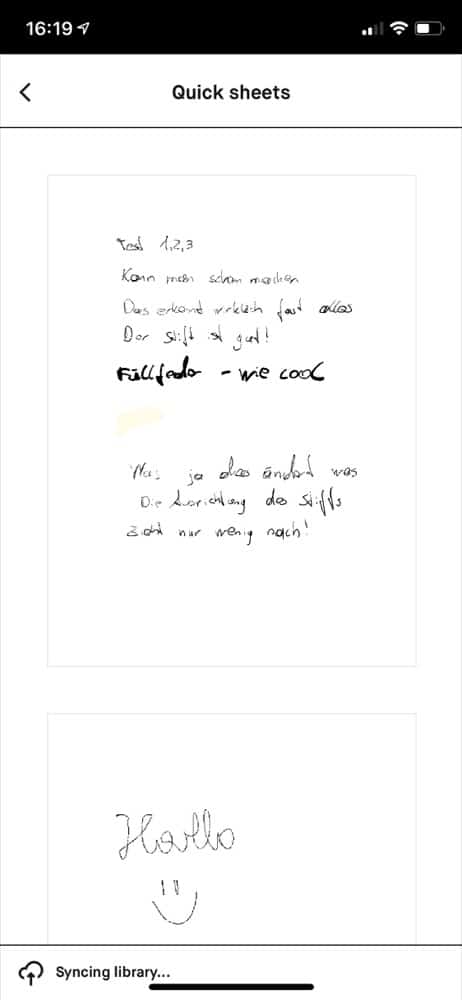 16:19
Quick sheets
Test 1,2,3
Kann man schon machen
Das erkennt wirklich fast alles
Der Stift ist gut!
Füllfeder - wie cool
ja das ändert was
Die Ausrichtung des Stifts
zieht nur wenig nach!
Hallo
Syncing library...